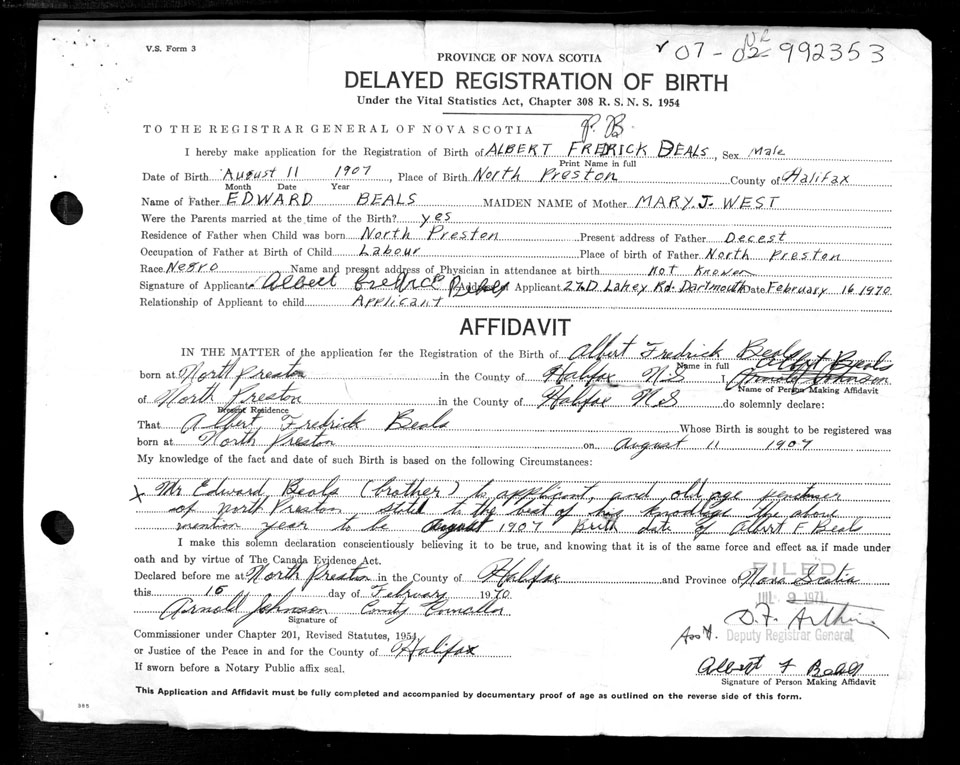 V.S. Form 3
07-02-992353
NR
PROVINCE OF NOVA SCOTIA
DELAYED REGISTRATION OF BIRTH
Under the Vital Statistics Act, Chapter 308 R. S. N. S. 1954
TO THE REGISTRAR GENERAL OF NOVA SCOTIA P. B.
I hereby make application for the Registration of Birth of ALBERT FREDRICK BEALS, Sex Male
Print Name in full
Date of Birth August 11 1907, Place of Birth North Preston County of Halifax
Month Date Year
Name of Father EDWARD BEALS MAIDEN NAME of Mother MARY. J. WEST
Were the Parents married at the time of the Birth? yes
Residence of Father when Child was born North Preston Present address of Father Decest
Occupation of Father at Birth of Child Labour Place of birth of Father North Preston
Race Negro Name and present address of Physician in attendance at birth not Known
Signature of Applicant Albert Fredrick Beals Address of Applicant 27D Lahey Rd. Dartmouth Date February 16 1970
Relationship of Applicant to child Applicant
AFFIDAVIT
IN THE MATTER of the application for the Registration of the Birth of Albert Fredrick Beals
Name in full Albert Beals
born at North Preston in the County of Halifax N.S I Arnold Johnson
Name of Person Making Affidavit
of North Preston in the County of Halifax N.S do solemnly declare:
Present Residence
That Albert Fredrick Beals Whose Birth is sought to be registered was
born at North Preston on August 11 1907
My knowledge of the fact and date of such Birth is based on the following Circumstances:
X Mr Edward Beals (brother) to applicant, and old age
of North Preston state to the best of his knowlage the above
mention year to be August 1907 Birth date of Albert F Beals
I make this solemn declaration conscientiously believing it to be true, and knowing that it is of the same force and effect as if made under
oath and by virtue of The Canada Evidence Act.
FILED
Declared before me at North Preston in the County of Halifax and Province of Nova Scotia
this 16 day of February 1970
JUL 9 1971
Arnold Johnson County Councillor
Signature of
D.F. Arthur
Ass't. Deputy Registrar General
Commissioner under Chapter 201, Revised Statutes, 1954
or Justice of the Peace in and for the County of Halifax
If sworn before a Notary Public affix seal.
Albert F Beals
Signature of Person Making Affidavit
This Application and Affidavit must be fully completed and accompanied by documentary proof of age as outlined on the reverse side of this form.
385